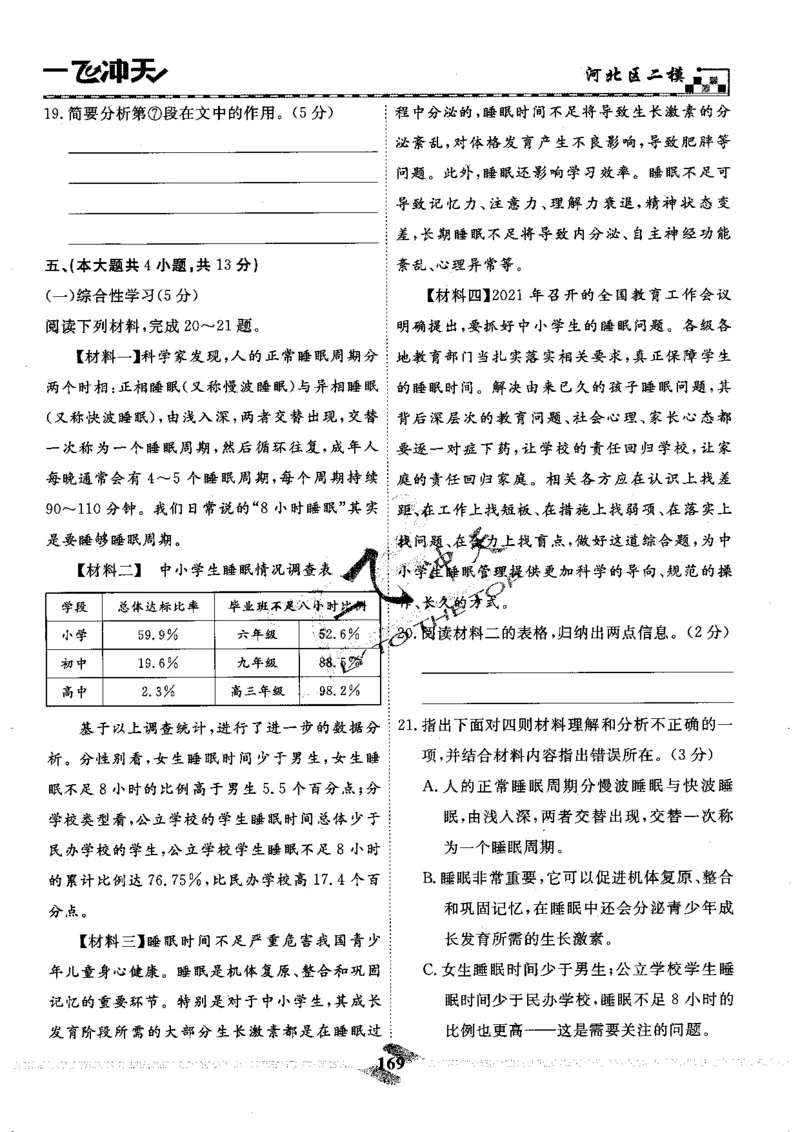 一飞冲天
河北区二模
19.简要分析第⑦段在文中的作用。(5分)
五、(本大题共4小题,共13分)
(一)综合性学习(5分)
阅读下列材料,完成20～21题。
【材料一】科学家发现,人的正常睡眠周期分
两个时相:正相睡眠(又称慢波睡眠)与异相睡眠
(又称快波睡眠),由浅入深,两者交替出现,交替
一次称为一个睡眠周期,然后循环往复,成年人
每晚通常会有4～5个睡眠周期,每个周期持续
90～110分钟。我们日常说的“8小时睡眠”其实
是要睡够睡眠周期。
【材料二】 中小学生睡眠情况调查表
学段 总体达标比率 毕业班不足八小时比例
小学 59.9% 六年级 52.6%
初中 19.6% 九年级 88.6%
高中 2.3% 高三年级 98.2%
基于以上调查统计,进行了进一步的数据分
析。分性别看,女生睡眠时间少于男生,女生睡
眠不足8小时的比例高于男生5.5个百分点;分
学校类型看,公立学校的学生睡眠时间总体少于
民办学校的学生,公立学校学生睡眠不足8小时
的累计比例达76.75%,比民办学校高17.4个百
分点。
【材料三】睡眠时间不足严重危害我国青少
年儿童身心健康。睡眠是机体复原、整合和巩固
记忆的重要环节。特别是对于中小学生,其成长
发育阶段所需的大部分生长激素都是在睡眠过
程中分泌的,睡眠时间不足将导致生长激素的分
泌紊乱,对体格发育产生不良影响,导致肥胖等
问题。此外,睡眠还影响学习效率。睡眠不足可
导致记忆力、注意力、理解力衰退,精神状态变
差,长期睡眠不足将导致内分泌、自主神经功能
紊乱、心理异常等。
【材料四】2021年召开的全国教育工作会议
明确提出,要抓好中小学生的睡眠问题。各级各
地教育部门当扎实落实相关要求,真正保障学生
的睡眠时间。解决由来已久的孩子睡眠问题,其
背后深层次的教育问题、社会心理、家长心态都
要逐一对症下药,让学校的责任回归学校,让家
庭的责任回归家庭。相关各方应在认识上找差
距、在工作上找短板、在措施上找弱项、在落实上
找问题、在合力上找盲点,做好这道综合题,为中
小学生睡眠管理提供更加科学的导向、规范的操
作、长久的方式。
20.阅读材料二的表格,归纳出两点信息。(2分)
21.指出下面对四则材料理解和分析不正确的一
项,并结合材料内容指出错误所在。(3分)
A.人的正常睡眠周期分慢波睡眠与快波睡
眠,由浅入深,两者交替出现,交替一次称
为一个睡眠周期。
B.睡眠非常重要,它可以促进机体复原、整合
和巩固记忆,在睡眠中还会分泌青少年成
长发育所需的生长激素。
C.女生睡眠时间少于男生;公立学校学生睡
眠时间少于民办学校,睡眠不足8小时的
比例也更高——这是需要关注的问题。
169
飞冲天
FLY TO THE TOP